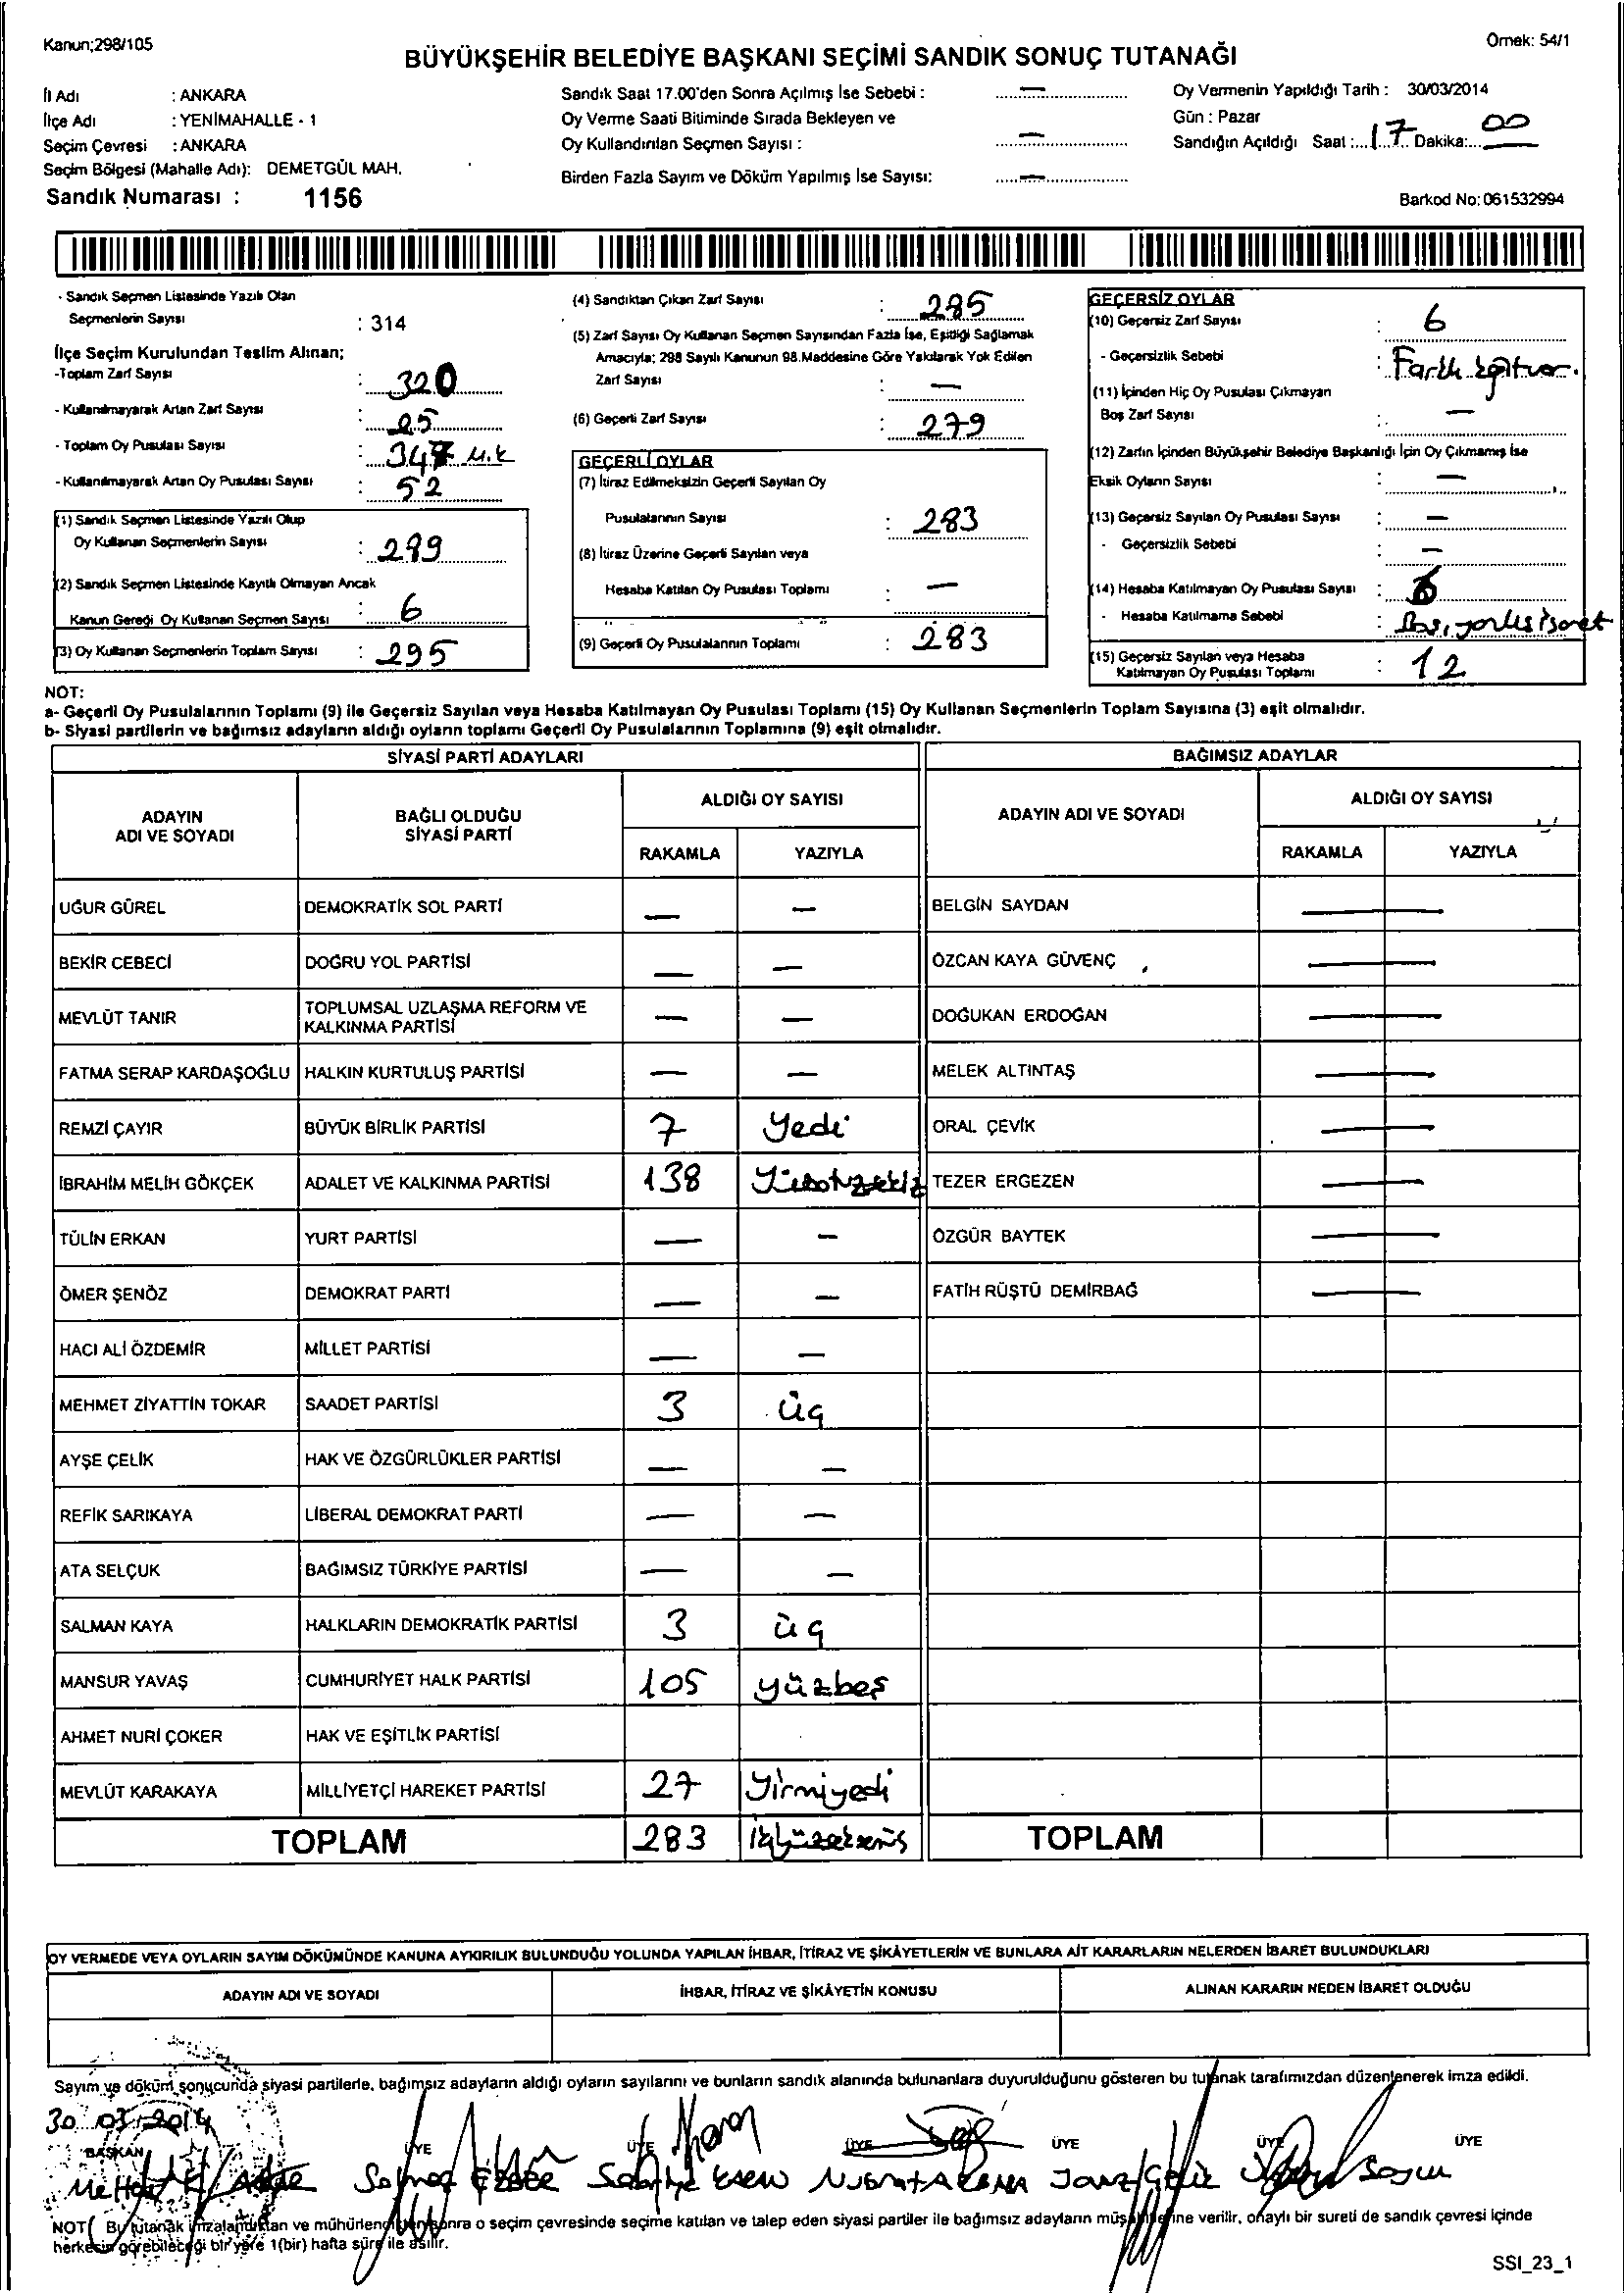 Kanun;298/105
Örnek: 54/1
BÜYÜKŞEHİR BELEDİYE BAŞKANI SEÇİMİ SANDIK SONUÇ TUTANAĞI
İl Adı : ANKARA
İlçe Adı : YENİMAHALLE - 1
Seçim Çevresi : ANKARA
Seçim Bölgesi (Mahalle Adı): DEMETGÜL MAH.
Sandık Numarası : 1156
Sandık Saat 17.00'den Sonra Açılmış İse Sebebi : —
Oy Verme Saati Bitiminde Sırada Bekleyen ve
Oy Kullandırılan Seçmen Sayısı : —
Birden Fazla Sayım ve Döküm Yapılmış İse Sayısı: —
Oy Vermenin Yapıldığı Tarih : 30/03/2014
Gün : Pazar
Sandığın Açıldığı Saat :...17.. Dakika:...00
Barkod No: 061532994
- Sandık Seçmen Listesinde Yazılı Olan
Seçmenlerin Sayısı : 314
İlçe Seçim Kurulundan Teslim Alınan;
-Toplam Zarf Sayısı : 320
- Kullanılmayarak Artan Zarf Sayısı : 25
- Toplam Oy Pusulası Sayısı : 347 M.K
- Kullanılmayarak Artan Oy Pusulası Sayısı : 52
(1) Sandık Seçmen Listesinde Yazılı Olup
Oy Kullanan Seçmenlerin Sayısı : 289
(2) Sandık Seçmen Listesinde Kayıtlı Olmayan Ancak
Kanun Gereği Oy Kullanan Seçmen Sayısı : 6
(3) Oy Kullanan Seçmenlerin Toplam Sayısı : 295
(4) Sandıktan Çıkan Zarf Sayısı : 285
(5) Zarf Sayısı Oy Kullanan Seçmen Sayısından Fazla İse, Eşitliği Sağlamak
Amacıyla; 298 Sayılı Kanunun 98.Maddesine Göre Yakılarak Yok Edilen
Zarf Sayısı : —
(6) Geçerli Zarf Sayısı : 279
GEÇERLİ OYLAR
(7) İtiraz Edilmeksizin Geçerli Sayılan Oy
Pusulalarının Sayısı : 283
(8) İtiraz Üzerine Geçerli Sayılan veya
Hesaba Katılan Oy Pusulası Toplamı : —
(9) Geçerli Oy Pusulalarının Toplamı : 283
GEÇERSİZ OYLAR
(10) Geçersiz Zarf Sayısı : 6
- Geçersizlik Sebebi :
(11) İçinden Hiç Oy Pusulası Çıkmayan
Boş Zarf Sayısı : —
(12) Zarfın İçinden Büyükşehir Belediye Başkanlığı İçin Oy Çıkmamış İse
Eksik Oyların Sayısı : —
(13) Geçersiz Sayılan Oy Pusulası Sayısı : —
- Geçersizlik Sebebi : —
(14) Hesaba Katılmayan Oy Pusulası Sayısı : 6
- Hesaba Katılmama Sebebi :
(15) Geçersiz Sayılan veya Hesaba
Katılmayan Oy Pusulası Toplamı : 12
NOT:
a- Geçerli Oy Pusulalarının Toplamı (9) ile Geçersiz Sayılan veya Hesaba Katılmayan Oy Pusulası Toplamı (15) Oy Kullanan Seçmenlerin Toplam Sayısına (3) eşit olmalıdır.
b- Siyasi partilerin ve bağımsız adayların aldığı oyların toplamı Geçerli Oy Pusulalarının Toplamına (9) eşit olmalıdır.
SİYASİ PARTİ ADAYLARI
ADAYIN ADI VE SOYADI
BAĞLI OLDUĞU SİYASİ PARTİ
ALDIĞI OY SAYISI
RAKAMLA YAZIYLA
UĞUR GÜREL DEMOKRATİK SOL PARTİ — —
BEKİR CEBECİ DOĞRU YOL PARTİSİ — —
MEVLÜT TANIR TOPLUMSAL UZLAŞMA REFORM VE KALKINMA PARTİSİ — —
FATMA SERAP KARDAŞOĞLU HALKIN KURTULUŞ PARTİSİ — —
REMZİ ÇAYIR BÜYÜK BİRLİK PARTİSİ 7 Yedi
İBRAHİM MELİH GÖKÇEK ADALET VE KALKINMA PARTİSİ 138
TÜLİN ERKAN YURT PARTİSİ — —
ÖMER ŞENÖZ DEMOKRAT PARTİ — —
HACI ALİ ÖZDEMİR MİLLET PARTİSİ — —
MEHMET ZİYATTİN TOKAR SAADET PARTİSİ 3 üç
AYŞE ÇELİK HAK VE ÖZGÜRLÜKLER PARTİSİ — —
REFİK SARIKAYA LİBERAL DEMOKRAT PARTİ — —
ATA SELÇUK BAĞIMSIZ TÜRKİYE PARTİSİ — —
SALMAN KAYA HALKLARIN DEMOKRATİK PARTİSİ 3 üç
MANSUR YAVAŞ CUMHURİYET HALK PARTİSİ 105 yüzbeş
AHMET NURİ ÇOKER HAK VE EŞİTLİK PARTİSİ
MEVLÜT KARAKAYA MİLLİYETÇİ HAREKET PARTİSİ 27 Yirmiyedi
TOPLAM 283
BAĞIMSIZ ADAYLAR
ADAYIN ADI VE SOYADI
ALDIĞI OY SAYISI
RAKAMLA YAZIYLA
BELGİN SAYDAN —
ÖZCAN KAYA GÜVENÇ —
DOĞUKAN ERDOĞAN —
MELEK ALTINTAŞ —
ORAL ÇEVİK —
TEZER ERGEZEN —
ÖZGÜR BAYTEK —
FATİH RÜŞTÜ DEMİRBAĞ —
TOPLAM
OY VERMEDE VEYA OYLARIN SAYIM DÖKÜMÜNDE KANUNA AYKIRILIK BULUNDUĞU YOLUNDA YAPILAN İHBAR, İTİRAZ VE ŞİKÂYETLERİN VE BUNLARA AİT KARARLARIN NELERDEN İBARET BULUNDUKLARI
ADAYIN ADI VE SOYADI İHBAR, İTİRAZ VE ŞİKÂYETİN KONUSU ALINAN KARARIN NEDEN İBARET OLDUĞU
Sayım ve döküm sonucunda siyasi partilerle, bağımsız adayların aldığı oyların sayılarını ve bunların sandık alanında bulunanlara duyurulduğunu gösteren bu tutanak tarafımızdan düzenlenerek imza edildi.
30.03.2014
BAŞKAN ÜYE ÜYE ÜYE ÜYE ÜYE ÜYE
NOT( Bu tutanak imzalandıktan ve mühürlendikten sonra o seçim çevresinde seçime katılan ve talep eden siyasi partiler ile bağımsız adayların müşahitlerine verilir, onaylı bir sureti de sandık çevresi içinde
herkesin görebileceği bir yere 1(bir) hafta süre ile asılır.
SSI_23_1